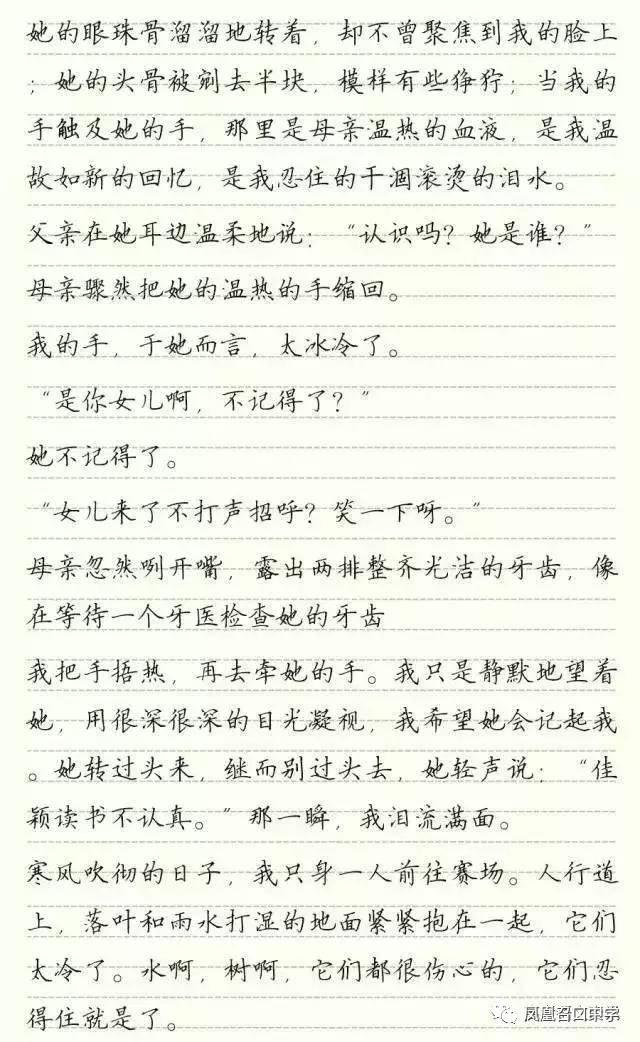 她的眼珠骨溜溜地转着，却不曾聚焦到我的脸上
；她的头骨被剜去半块，模样有些狰狞；当我的
手触及她的手，那里是母亲温热的血液，是我温
故如新的回忆，是我忍住的干涸滚烫的泪水。
父亲在她耳边温柔地说：“认识吗？她是谁？”
母亲骤然把她的温热的手缩回。
我的手，于她而言，太冰冷了。
“是你女儿啊，不记得了？”
她不记得了。
“女儿来了不打声招呼？笑一下呀。”
母亲忽然咧开嘴，露出两排整齐光洁的牙齿，像
在等待一个牙医检查她的牙齿
我把手捂热，再去牵她的手。我只是静默地望着
她，用很深很深的目光凝视，我希望她会记起我
。她转过头来，继而别过头去，她轻声说：“佳
颖读书不认真。”那一瞬，我泪流满面。
寒风吹彻的日子，我只身一人前往赛场。人行道
上，落叶和雨水打湿的地面紧紧抱在一起，它们
太冷了。水啊，树啊，它们都很伤心的，它们忍
得住就是了。
凤凰中学